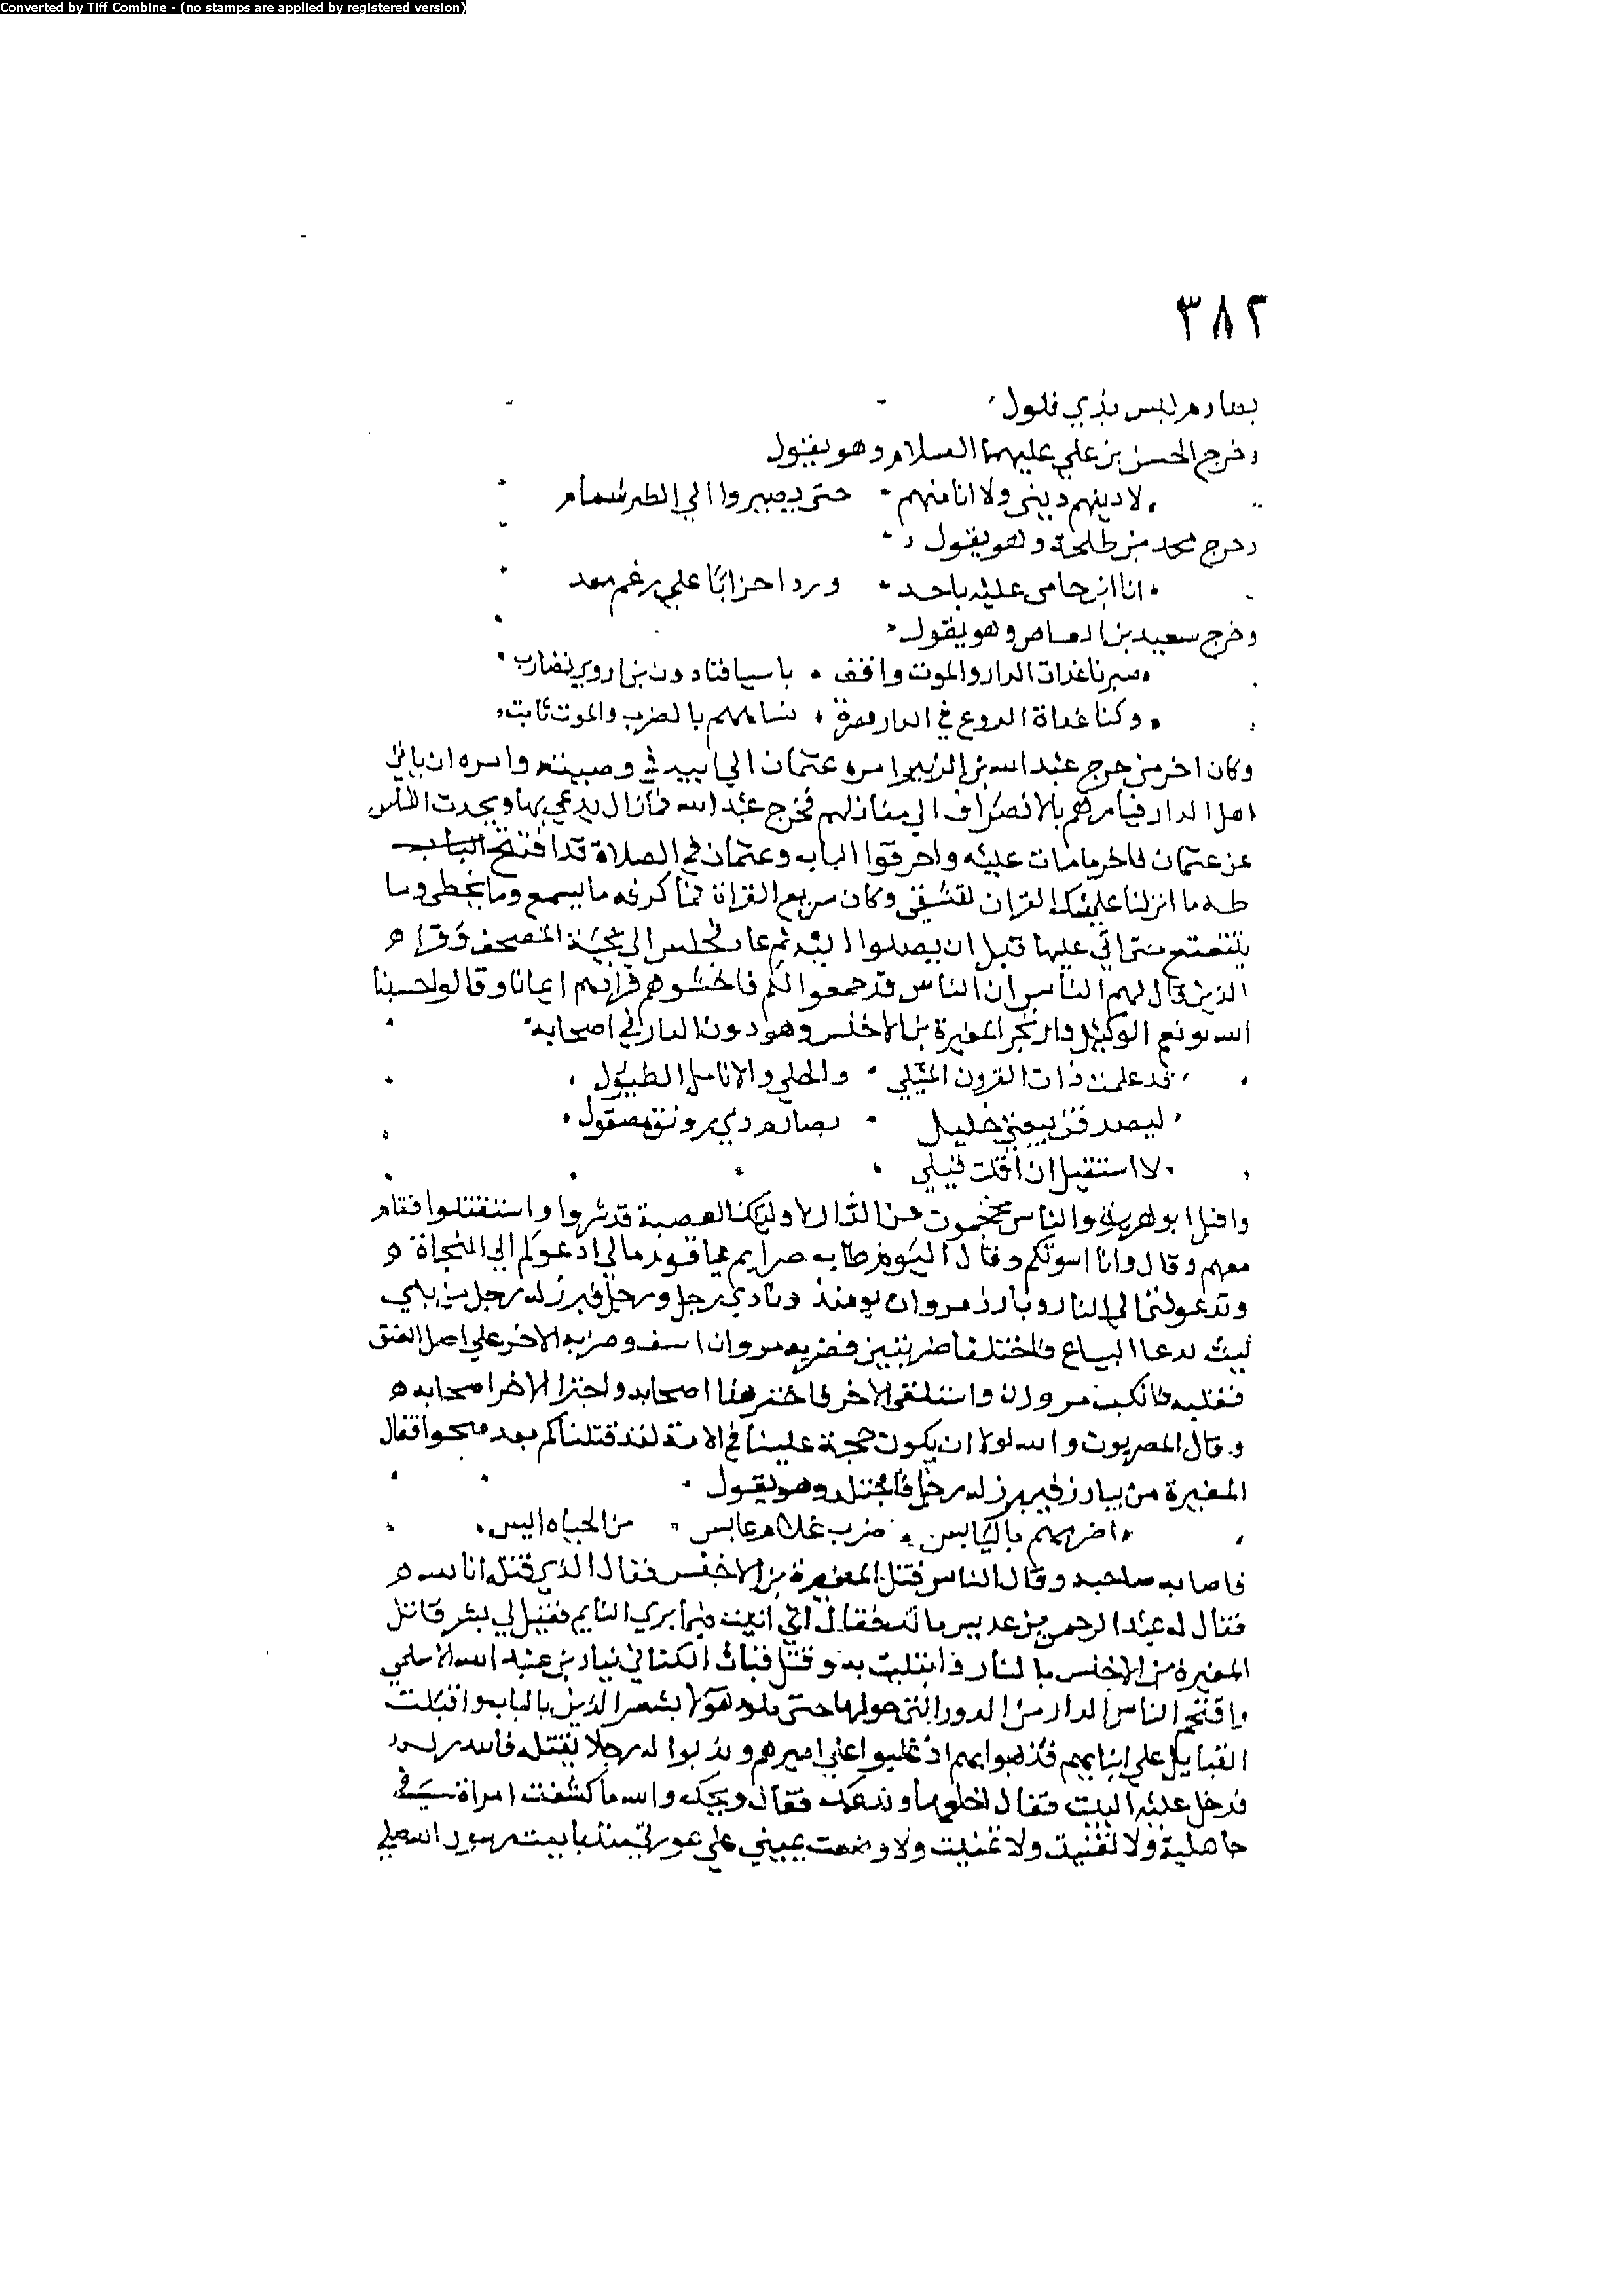 Converted by Tiff Combine - (no stamps are applied by registered version)
٣٨٢
بصارم ليس بذي فلول
وخرج الحسن بن علي عليهما السلام وهو يقول
لا دينهم ديني ولا انا منهم حتى يصيروا الي الطمر شمام
وخرج محمد بن طلحة وهو يقول
انا ابن حامى عليه باحد ورد احزابا علي رغم معد
وخرج سعيد بن العاص وهو يقول
صبرنا غداة الدار والموت واقف باسيافنا دون بن اروي نضارب
وكنا غداة الروع في الدار نصرة نشافههم بالضرب والموت ثابت
وكان اخر من خرج عبد الله بن الزبير امره عثمان الي ابيه في وصيته وامره ان ياتي
اهل الدار فيامرهم بالانصراف الي منازلهم فخرج عبد الله فمازال يدعي بها ويحدث الناس
عن عثمان باخر ما مات عليه واحرقوا الباب وعثمان في الصلاة قد افتتح الباب
طه ما انزلنا عليك القران لتشقى وكان سريع القراة فما كرثه ما يسمع وما يخطي وما
يتتعتع حتى اتي عليها قبل ان يصلوا اليه ثم عاد فجلس الي المصحف وقرا ه
الذين قال لهم الناس ان الناس قد جمعوا لكم فاخشوهم فزادهم ايمانا وقالوا حسبنا
الله ونعم الوكيل وارتجز المغيرة بن الاخنس وهو دون الدار في اصحابه
قد علمت ذات القرون الميلي والحلي والانامل الطبول
ليصدقن بيعتي خليل بصارم ذي رونق مصقول
لا استقيل ان اقلت قيلي
واقبل ابو هريرة والناس محجمون عن الدار الا وليك العصبة قد شروا واستقتلوا فقام
معهم وقال وانا اسوتكم وقال اليوم طاب ضرابم يا قوم مالي ادعوكم الي النجاة ه
وتدعونني الي النار وبارز مروان يومئذ ونادي رجل ورجل فبرز له رجل من بني
ليث يدعا البياع فاختلفا ضربتين فضربه مروان اسف وضربه الاخر علي اصل العنق
فقلبه فانكب مروان واستلقى الاخر فاجتر هذا اصحابه واجتز الاخر اصحابه ه
وقال المصريون والله لولا ان يكون حجة علينا في الامة لقد قتلناكم بعد فقال
المغيرة من يبارز فبرز له رجل فاجتلد وهو يقول
اضربهم باليابس ضرب غلام عابس من الحياة ايس
فاصابه صاحبه وقال الناس قتل المغيرة بن الاخنس فقال الذي قتله انا لله ه
فقال له عبد الرحمن بن عديس مالك فقال اني اتيت فيما يري النايم فقيل لي بشر قاتل
المغيرة بن الاخنس بالنار فابتليت به وقتل قباث الكناني نيار بن عبد الله الاسلمي
واقتحم الناس الدار من الدور التي حولها حتى ملوها ولا يشعر الذين بالباب واقبلت
القبايل علي ابنايهم فذهبوا بهم اذ غلبوا علي اميرهم وندبوا له رجلا يقتله فانتدب له
فدخل عليه البيت فقال اخلعها وندعك فقال ويحك والله ما كشفت امراة في
جاهلية ولا تغنيت ولا تمنيت ولا وضعت يميني علي عورتي منذ بايعت رسول الله صلي